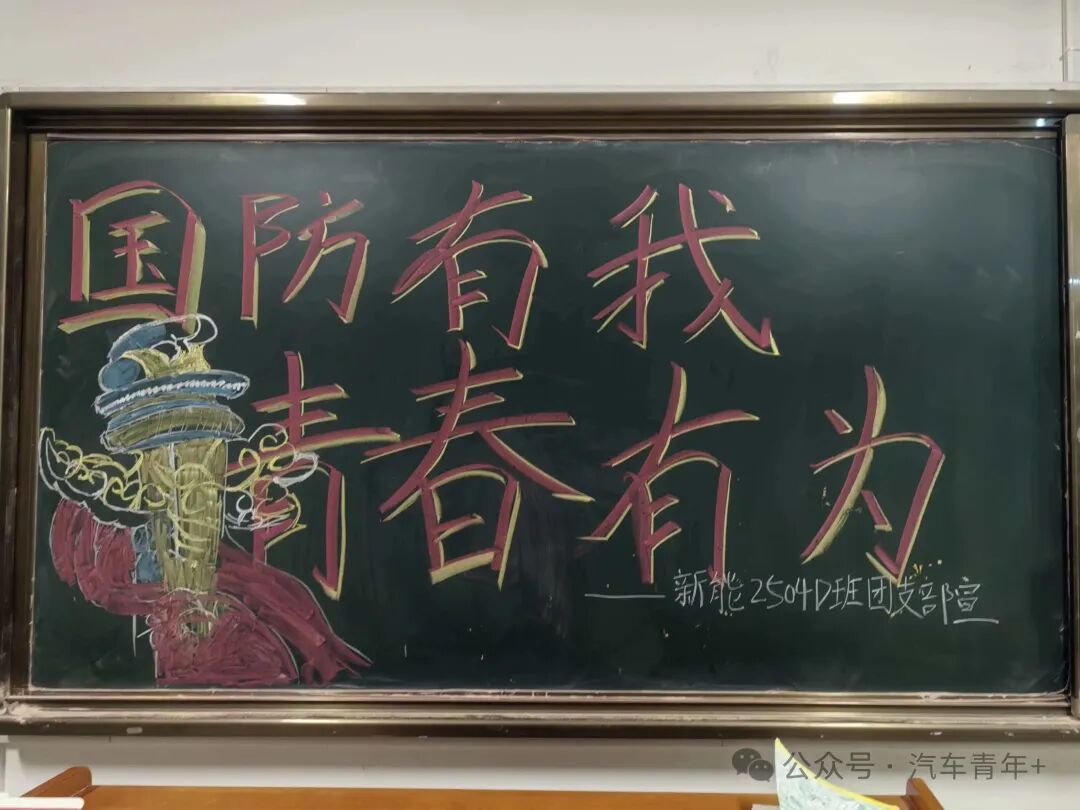 国防有我
青春有为
——新能2504D班团支部宣
公众号·汽车青年+